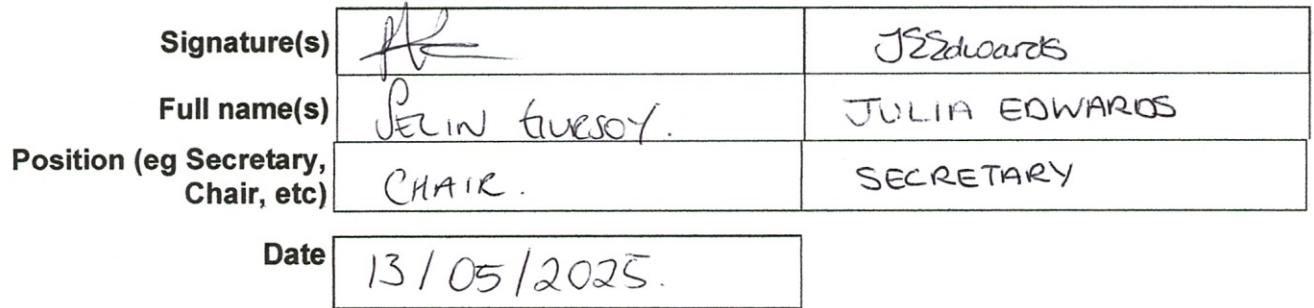 Signature(s) JSEdwards
Full name(s) SELIN GURSOY. JULIA EDWARDS
Position (eg Secretary,
Chair, etc) CHAIR. SECRETARY
Date 13/05/2025.